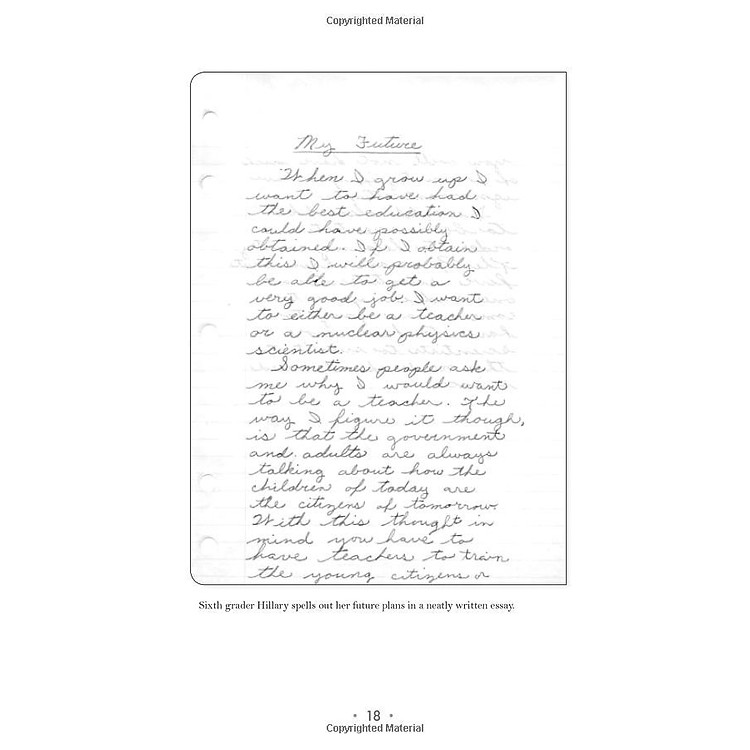 Copyrighted Material
My Future
When I grow up I
want to have had
the best education I
could have possibly
obtained. If I obtain
this I will probably
be able to get a
very good job. I want
to either be a teacher
or a nuclear physics
scientist.
Sometimes people ask
me why I would want
to be a teacher. The
way I figure it though,
is that the government
and adults are always
talking about how the
children of today are
the citizens of tomorrow.
With this thought in
mind you have to
have teachers to train
the young citizens or
Sixth grader Hillary spells out her future plans in a neatly written essay.
• 18 •
Copyrighted Material